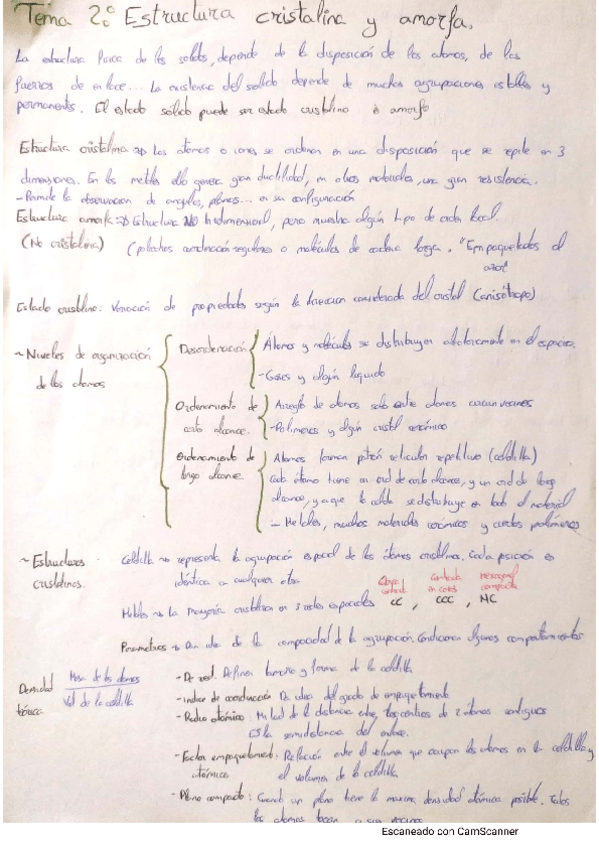 Tema 2: Estructura cristalina y amorfa.
La estructura física de los solidos, depende de la disposición de los atomos, de las
fuerzas de enlace... La existencia del solido depende de muchas agrupaciones estables y
permanentes. El estado solido puede ser estado cristalino o amorfo
Estructura cristalina → Los atomos o iones se ordenan en una disposición que se repite en 3
dimensiones. En los metales ello genera gran ductilidad, en otros materiales, una gran resistencia.
- Permite la observacion de angulos, planos... en su configuración
Estructura amorfa → Estructura NO tridimensional, pero muestra algún tipo de orden local.
(No cristalina) (poliedros coordinación regulares o moléculas de cadena larga. "Empaquetados al
azar"
Estado cristalino: Variación de propiedades según la direccion considerada del cristal (anisótropo)
~ Niveles de organización
de los atomos
Desordenación
Átomos y moléculas se distribuyen aleatoriamente en el espacio.
- Gases y algún liquido
Ordenamiento de
corto alcance.
Arreglo de atomos solo entre atomos vecinos
- Polímeros y algún cristal cerámico
Ordenamiento de
largo alcance.
Atomos forman patrón reticular repetitivo (celdilla)
Cada átomo tiene un ord de corto alcance, y un ord de largo
alcance, ya que la celda se distribuye en todo el material
- Metales, muchos materiales cerámicos y ciertos polímeros
~ Estructuras
cristalinas.
Celdilla → representa la agrupación espacial de los átomos cristalina. Cada posición es
idéntica a cualquier otra
Cúbica centrada
Centrada en caras
Hexagonal compacta
Metales → La mayoría cristaliza en 3 redes espaciales CC, CCC, HC
Parametros → Dan idea de la compacidad de la agrupación. Condicionan algunos comportamientos
Densidad teórica
Masa de los atomos
Vol de la celdilla
- De red. Definen tamaño y forma de la celdilla
- Indice de coordinación Da idea del grado de empaquetamiento
- Radio atómico: Mitad de la distancia entre los centros de 2 atomos contiguos
Es la semidistancia del enlace.
- Factor empaquetamiento atómico: Relación entre el volumen que ocupan los atomos en la celdilla y
el volumen de la celdilla.
- Plano compacto: Cuando un plano tiene la maxima densidad atómica posible. Todos
los atomos tocan a sus vecinos
Escaneado con CamScanner